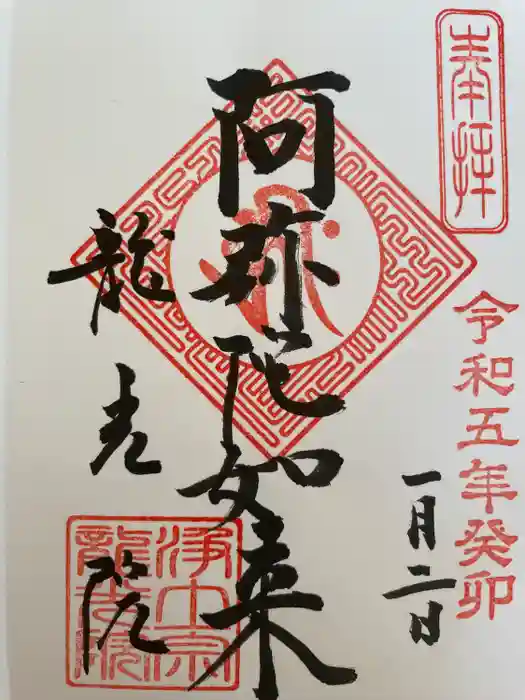 奉拝
令和五年癸卯
一月二日
阿弥陀如来
龍光院
浄土宗
龍光院